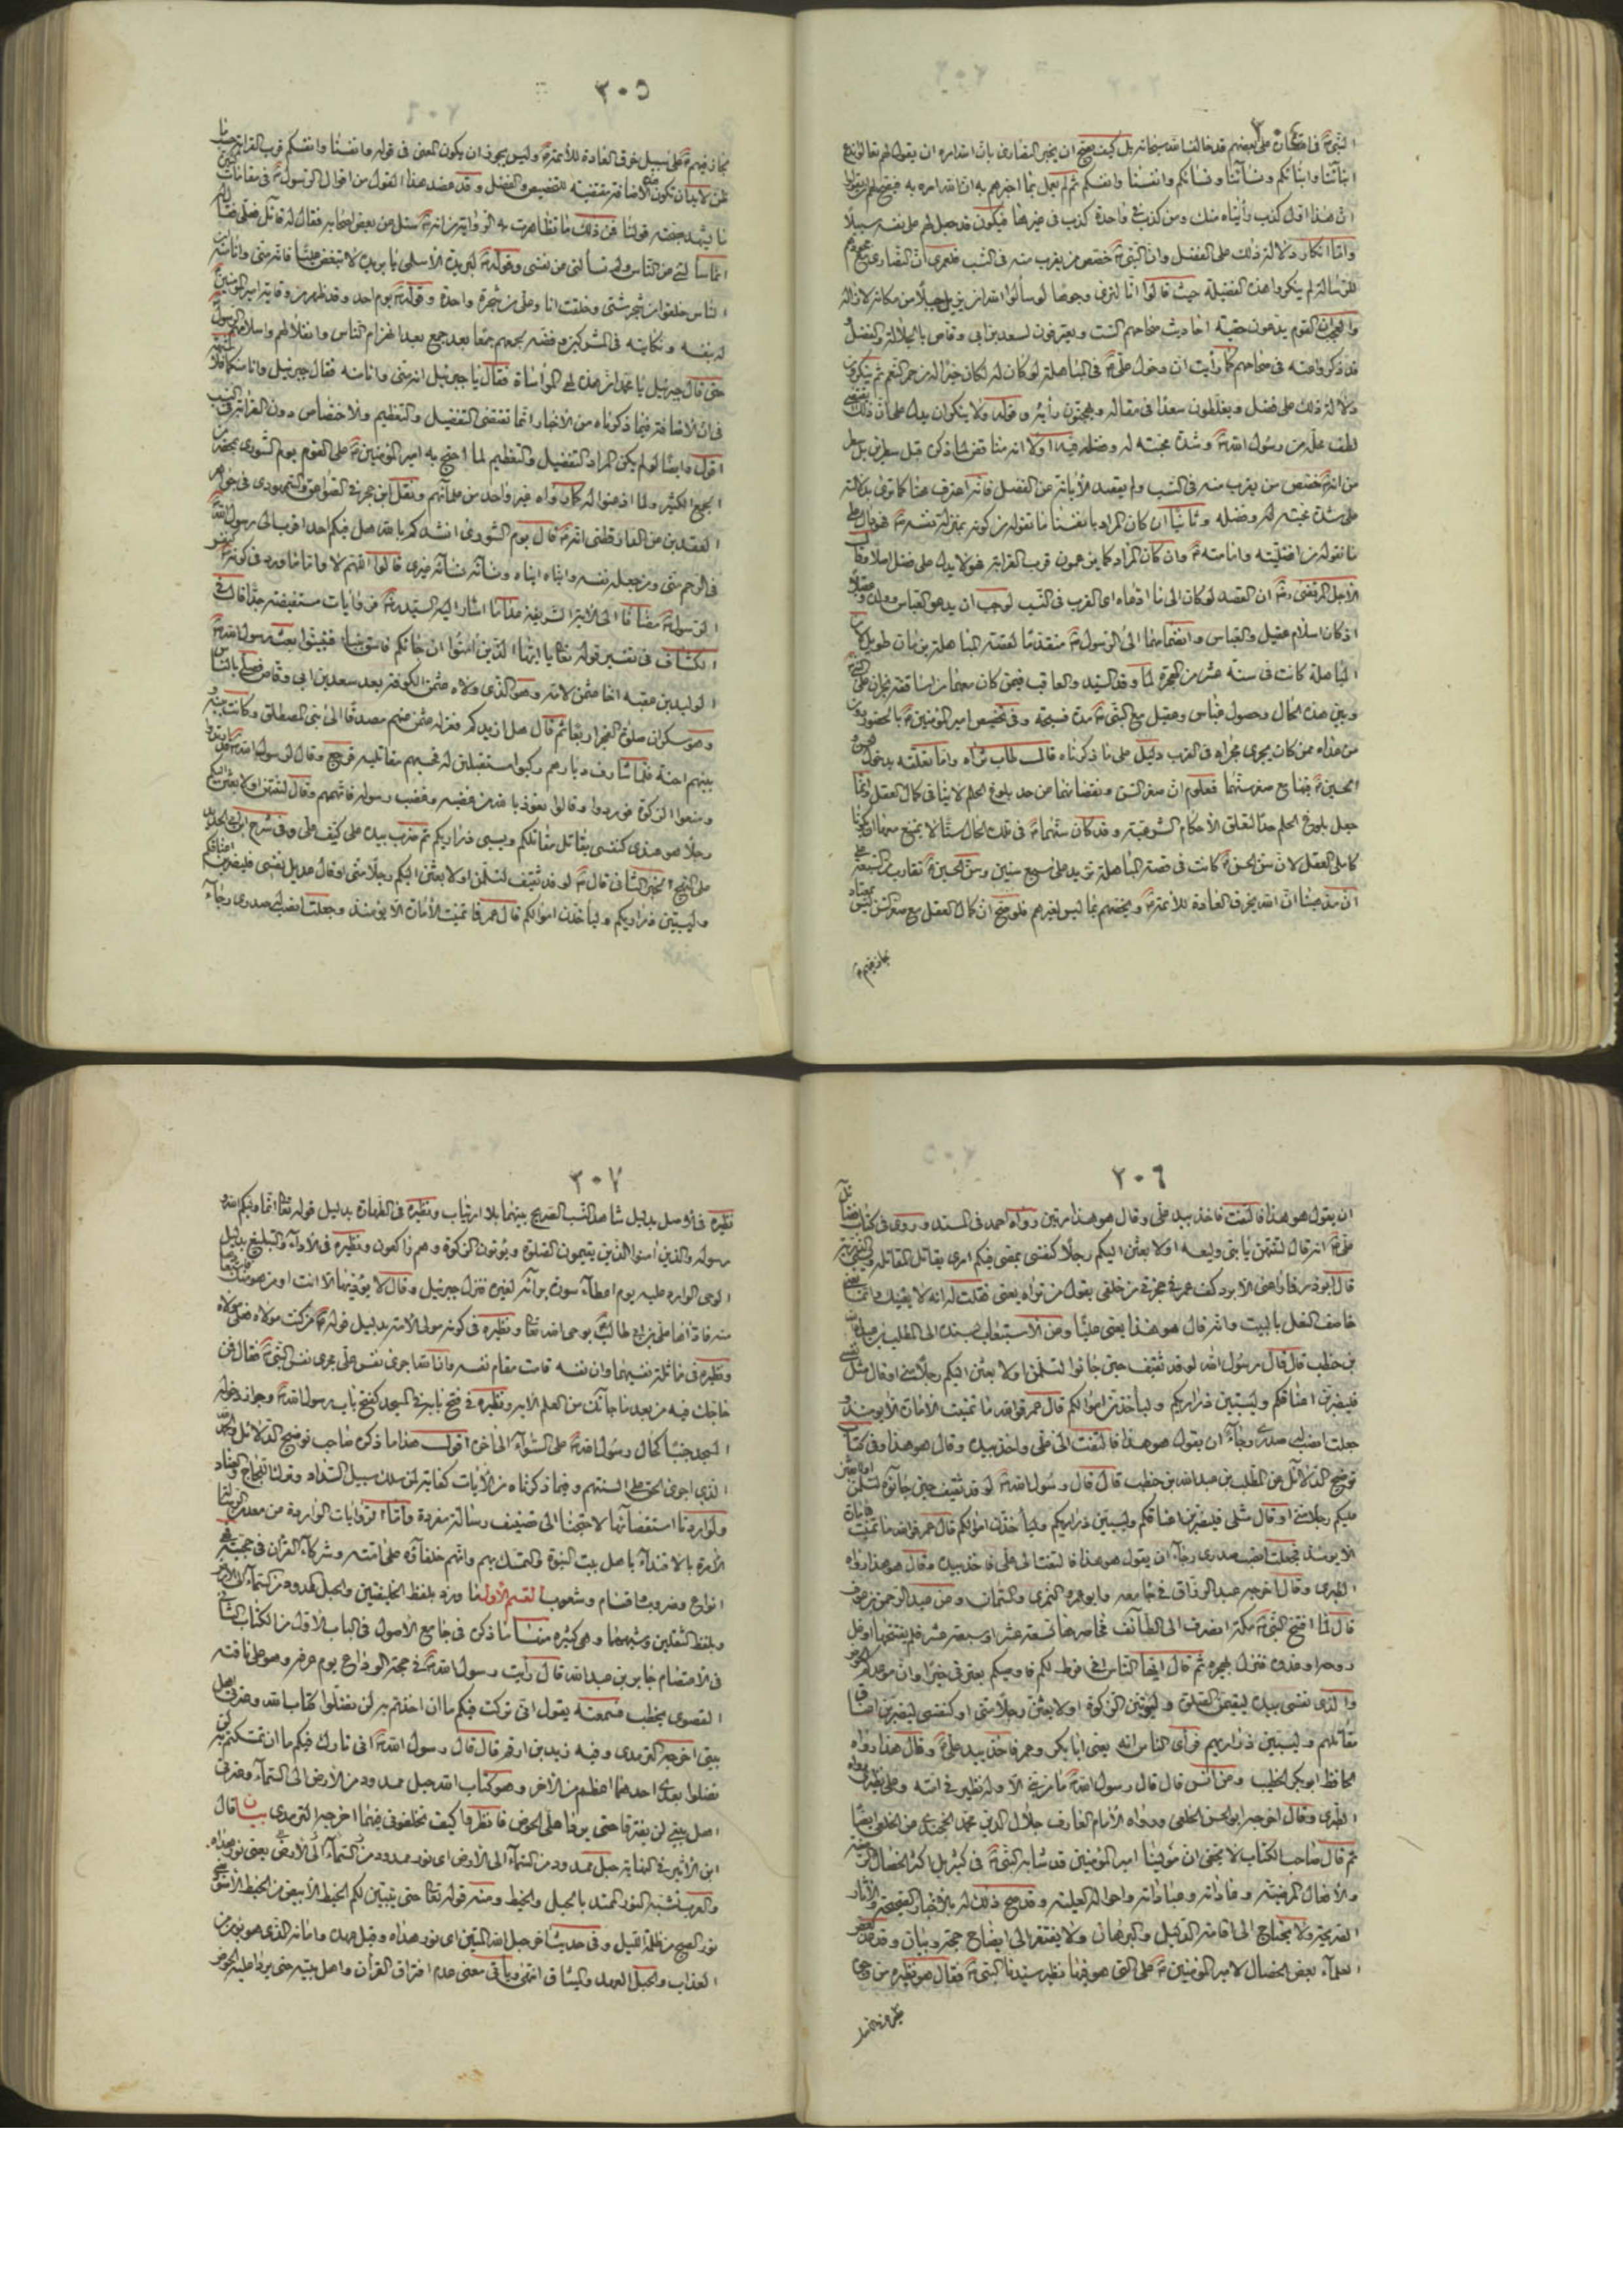 ٣٠٤
النبي في احتجاجات على بعضهم قد خالف الله سبحانه بل كيف يصح ان يخبر النصارى بان الله امره ان يقول لهم تعالوا ندع
ابنائنا وابنائكم ونسائنا ونسائكم وانفسنا وانفسكم ثم لم يعمل بما اخبرهم به ان الله امره به
ان هذا اول كذب رأيناه منك ومن كذب في واحدة كذب في غيرها فيكون قد جعل لهم على نفسه سبيلا
واما انكار دلالة ذلك على الفضل وان النبي خصص من يقرب منه في النسب فلعمرى ان النصارى
لم ينكروا هذه الفضيلة حيث قالوا انا لنرى وجوها لو سألوا الله ان يزيل جبلا من مكانه لازاله
القوم يدعون حقية احاديث صحاحهم الست ويعترفون لسعد بن ابى وقاص بالجلالة والفضل
قد ذكر واحثه في صحاحهم كما رأيت ان دخول علي في المباهلة لو كان له لكان خيرا له من حمر النعم ثم ينكرون
دلالة ذلك على فضل ويغلطون سعدا في مقاله
لطف علي من رسول الله وشدة محبته له وفضله فيه اولا انه مناقض لما ذكره قبل
من انه خصص من يقرب منه في النسب ولم يقصد الابانة عن الفضل فانه اعترف هنا
على شدة محبته له وفضله وثانيا ان كان المراد بانفسنا ما نقوله من كونه بمنزلة نفسه
ما نقوله من افضليته وامامته وان كان المراد كما يزعمون قرب القرابة فهو لا يدل على فضل اصلا
الاجل المرتضى ان القصد لو كان الى ما ادعاه اى القرب في النسب لوجب ان يدعو العباس وولده وعقيلا
اذ كان اسلام عقيل والعباس وانضمامهما الى الرسول متقدما لقصة المباهلة بزمان طويل
المباهلة كانت في سنة عشر من الهجرة لما وفد السيد والعاقب فيمن كان معهما من اساقفة نجران على
وبين هذه الحال وحصول عباس وعقيل مع النبي مدة فسيحة وفي تخصيص امير المؤمنين بالحضور دون
من عداه ممن كان يجرى مجراه في القرب دليل على ما ذكرناه قال طاب ثراه واما تعلقه بدخول
الحسين فيها مع صغر سنهما فمعلوم ان صغر السن ونقصانها عن حد بلوغ الحلم لا ينافى كمال العقل وانما
جعل بلوغ الحلم حدا لتعلق الاحكام الشرعية وقد كان سنهما في تلك الحال سنا لا يمتنع معها ان يكونا
كاملى العقل لان سن الحسن كانت في قصة المباهلة تزيد على سبع سنين وسن الحسين تقارب السبعة
ان مذهبنا ان الله يخرق العادة للائمة ويخصهم بما ليس لغيرهم فلو صح ان كمال العقل مع صغر السن ليس
٣٠٥
لجاز فيهم على سبيل خرق العادة للائمة وليس يجوز ان يكون المعنى في قوله وانفسنا وانفسكم قرب القرابة
ظن لابد ان تكون الاضافة مقتضية للتخصيص والفضل وقد عضد هذا القول من اقوال الرسول في مقامات
ما يشهد بصحة قولنا فمن ذلك ما تظاهرت به الرواية من انه سئل عن بعض اصحابه فقال له قائل فعلي فقال
انما سألتنى عن الناس ولم تسألنى عن نفسى وقوله لبريدة الاسلمى يا بريدة لا تبغض عليا فانه منى وانا منه
الناس خلقوا من شجر شتى وخلقت انا وعلى من شجرة واحدة وقوله يوم احد وقد ظهر من وقاية امير المؤمنين
له بنفسه ونكايته في المشركين وفضه لجمعهم جمعا بعد جمع بعد انهزام الناس
حتى قال جبرئيل يا محمد ان هذه لهى المواساة فقال يا جبرئيل انه منى وانا منه فقال جبرئيل وانا منكما
فان الاضافة فيما ذكرناه من الاخبار انما تقتضى التفضيل والتعظيم والاختصاص دون القرابة
اقول وايضا لو لم يكن المراد التفضيل والتعظيم لما احتج به امير المؤمنين على القوم يوم الشورى بمحضر
الجمع الكثير ولما اذعنوا له كما رواه غير واحد من علمائهم ونقل ابن حجر في الصواعق والسمهودى في جواهر
العقدين عن الدارقطنى انه قال يوم الشورى انشدكم بالله هل فيكم احد اقرب الى رسول الله
في الرحم منى ومن جعله نفسه وابنائه ابنائه ونسائه نسائه غيرى قالوا اللهم لا واما ما ورد في كونه
الرسول مضافا الى الاية الشريفة عدا ما اشار اليه السيد من روايات مستفيضة جدا قال في
الكشاف في تفسير قوله تعالى يا ايها الذين امنوا ان جائكم فاسق بنبأ فتبينوا بعث رسول الله
الوليد بن عقبة اخا عثمن لامه وهو الذى ولاه عثمن الكوفة بعد سعد بن ابى وقاص فصلى بالناس
وهو سكران صلوة الفجر اربعا ثم قال هل ازيدكم فعزله عثمن عنهم مصدقا الى بنى المصطلق وكانت بينه
بينهم احنة فلما شارف ديارهم ركبوا مستقبلين له فحسبهم مقاتليه فرجع وقال لرسول الله قد ارتدوا
ومنعوا الزكوة فوردوا وقالوا نعوذ بالله من غضبه وغضب رسوله فاتهمهم وقال لتنتهن او لابعثن اليكم
رجلا هو عندى كنفسى يقاتل مقاتلكم ويسبى ذراريكم ثم ضرب بيده على كتف على وفى شرح ابن ابى الحديد
على النهج الخبر الثانى قال لوفد ثقيف لتسلمن او لابعثن اليكم رجلا منى او قال عديل نفسى فليضربن اعناقكم
وليسبين ذراريكم وليأخذن اموالكم قال عمر فما تمنيت الامارة الا يومئذ وجعلت انصب له صدرى رجاء
٣٠٦
ان يقول هو هذا فالتفت فاخذ بيد على وقال هو هذا مرتين رواه احمد في المسند وروى في كتاب فضائل
علي انه قال لتنتهن يا بنى وليعة او لابعثن اليكم رجلا كنفسى يمضى فيكم امرى يقاتل المقاتلة ويسبى الذرية
قال ابوذر فما راعنى الا برد كف عمر في حجزتى من خلفى يقول من تراه يعنى فقلت له انه لا يعنيك وانما يعنى
خاصف النعل بالبيت وانه قال هو هذا يعنى عليا وعن الاستيعاب بسنده الى المطلب بن عبد الله
بن حنطب قال قال رسول الله لوفد ثقيف حين جاؤا لتسلمن او لابعثن اليكم رجلا منى او قال مثل نفسى
فليضربن اعناقكم وليسبين ذراريكم وليأخذن اموالكم قال عمر فوالله ما تمنيت الامارة الا يومئذ
جعلت انصب له صدرى رجاء ان يقول هو هذا فالتفت الى على واخذ بيده وقال هو هذا وفى كتاب
توضيح الدلائل عن المطلب بن عبد الله بن حنطب قال قال رسول الله لوفد ثقيف حين جاؤه لتسلمن او لابعثن
عليكم رجلا منى او قال مثلى فليضربن اعناقكم وليسبين ذراريكم وليأخذن اموالكم قال عمر فوالله ما تمنيت الامارة
الا يومئذ فجعلت انصب صدرى رجاء ان يقول هو هذا فالتفت الى على فاخذ بيده وقال هو هذا رواه
الطبرى وقال اخرجه عبد الرزاق في جامعه وابو عمر النمرى والسمان وعن عبد الرحمن بن عوف
قال لما افتتح النبى مكة انصرف الى الطائف فحاصرها تسعة عشر او سبعة عشر فلم يفتتحها
روحة او غدوة فنزل بهجرة ثم قال ايها الناس انى فرط لكم فاوصيكم بعترتى خيرا وان موعدكم الحوض
والذى نفسى بيده ليقيمن الصلوة وليؤتين الزكوة او لابعثن رجلا منى او كنفسى ليضربن اعناق
مقاتلهم وليسبين ذراريهم فرأى الناس انه يعنى ابا بكر وعمر فاخذ بيد علي وقال هذا رواه
الحافظ ابوبكر الخطيب وعن انس قال قال رسول الله ما من نبى الا وله نظير في امته وعلى نظيرى رواه
الطبرى وقال اخرجه ابو الحسن الخلعى ورواه الامام العارف جلال الدين محمد الخجندى عن الخلعى ايضا
ثم قال صاحب الكتاب لا يخفى ان مولينا امير المؤمنين قد شابه النبى في كثير بل اكثر الخصال الرضية
والافعال المرضية وعاداته وعباداته واحواله العلية وقد صح ذلك له بالاخبار الصحيحة والاثار
الصريحة ولا يحتاج الى اقامة الدليل والبرهان ولا يفتقر الى ايضاح حجة وبيان وقد عد بعض
العلماء بعض الخصال لامير المؤمنين على التى هو فيها نظير سيدنا النبى فقال هو نظيره من وجوه
٣٠٧
نظيره في الاصل بدليل شاهد النسب الصريح بينهما بلا ارتياب ونظيره في الطهارة بدليل قوله تعالى انما وليكم الله
رسوله والذين امنوا الذين يقيمون الصلوة ويؤتون الزكوة وهم راكعون ونظيره في الاداء والتبليغ بدليل
الوحى الوارد عليه يوم اعطاء سورة برائة لغيره فنزل جبرئيل وقال لا يؤديها الا انت او من هو منك
منه فاداها على بن ابى طالب بوحى الله تعالى ونظيره في كونه مولى الامة بدليل قوله من كنت مولاه فعلى مولاه
ونظيره في مماثلة نفسيهما وان نفسه قامت مقام نفسه وان الله تعالى اجرى نفس على مجرى نفس النبى فقال فمن
حاجك فيه من بعد ما جائك من العلم الاية ونظيره في فتح بابه في المسجد كفتح باب رسول الله وجواز دخوله
المسجد جنبا كحال رسول الله على السواء الى اخره اقول هذا ما ذكره صاحب توضيح الدلائل
الذى اجرى الحق على السنتهم وفيما ذكرناه من الايات كفاية لمن سلك سبيل السداد وترك اللجاج والعناد
ولو اردنا استقصائها لاحتجنا الى تصنيف رسالة مفردة واما الروايات الواردة من معدن الرسالة
الامرة بالاقتداء باهل بيت النبوة والتمسك بهم وانهم خلفائه على امته وشركاء القرآن في حجيته
انواع وضروب واقسام وشعوب القسم الاول ما ورد بلفظ الخليفتين والحبل الممدود من السماء الى الارض
وبلفظ الثقلين وشبههما وهى كثيرة منها ما ذكره في جامع الاصول في الباب الاول من الكتاب الثانى
في الاعتصام جابر بن عبد الله قال رأيت رسول الله في حجة الوداع يوم عرفة وهو على ناقته
القصوى يخطب فسمعته يقول انى تركت فيكم ما ان اخذتم به لن تضلوا كتاب الله وعترتى اهل
بيتى اخرجه الترمدى وفيه زيد بن ارقم قال قال رسول الله انى تارك فيكم ما ان تمسكتم به لن
تضلوا بعدى احدهما اعظم من الاخر وهو كتاب الله حبل ممدود من الارض الى السماء وعترتى
اهل بيتى لن يفترقا حتى يردا على الحوض فانظروا كيف تخلفونى فيهما اخرجه الترمدى بيان قال
ابن الاثير في النهاية حبل ممدود من السماء الى الارض اى نور ممدود من السماء الى الارض يعنى نور هداه
والعرب تشبه النور الممتد بالحبل والخيط ومنه قوله تعالى حتى يتبين لكم الخيط الابيض من الخيط الاسود
نور الصبح من ظلمة الليل وفى حديث اخر حبل الله المتين اى نور هداه وقيل عهده وامانه الذى هو يؤمن من
العذاب والحبل العهد والميثاق انتهى ويأتى معنى عدم افتراق القرآن واهل بيته حتى يردا عليه الحوض